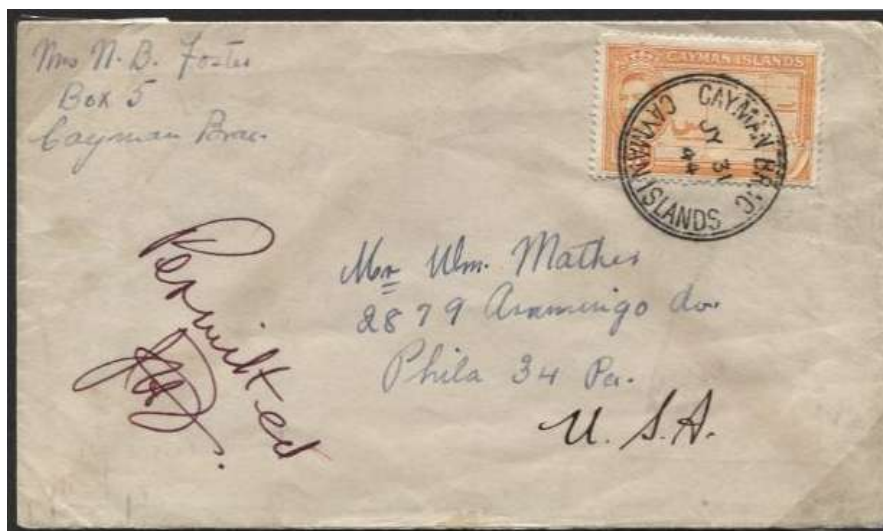 Mrs N. B. Foster
Box 5
Cayman Brac
CAYMAN ISLANDS
CAYMAN BRAC
JY 31
44
CAYMAN ISLANDS
Permitted
Mr Wm. Mather
2879 Aramingo Av
Phila 34 Pa.
U. S. A.